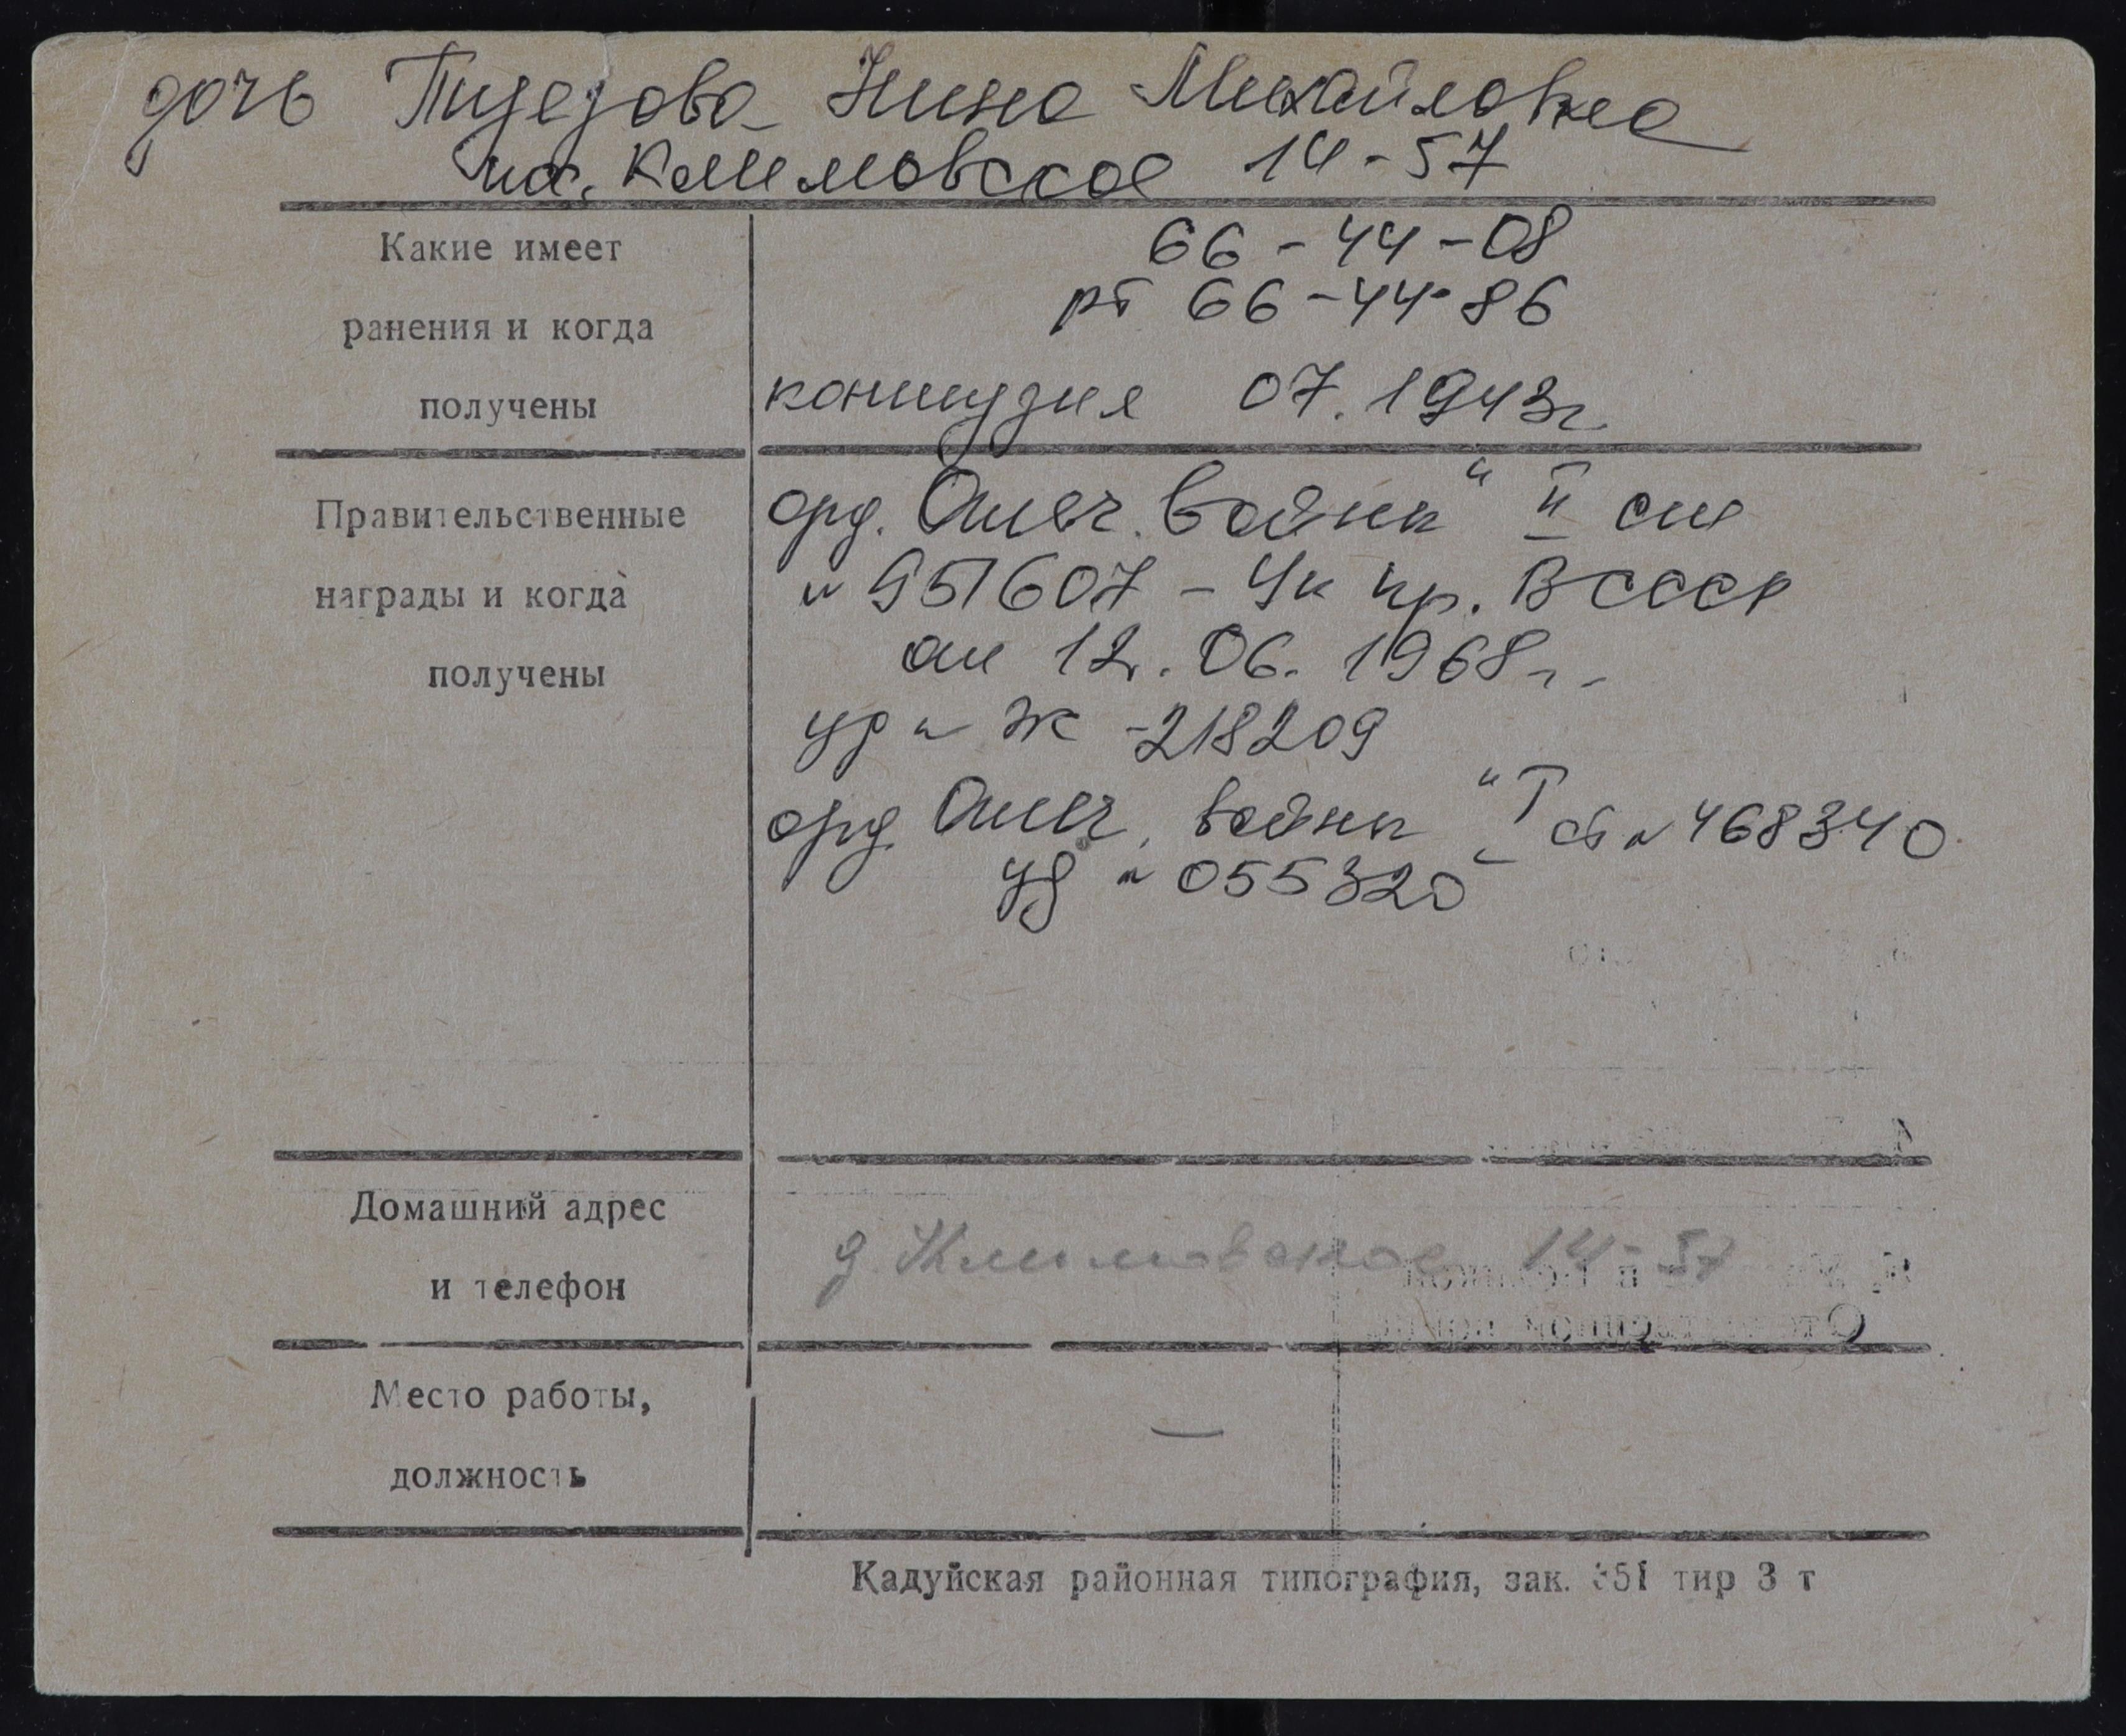 дочь Пидедова Нина Михайловна
пос. Климовское 14-57
Какие имеет
ранения и когда
получены
66-44-08
рт 66-44-86
контузия 07.1943г.
Правительственные
награды и когда
получены
орд. Отеч. войны" II ст
№ 951607 - Ук пр. ВСССР
от 12.06.1968г.
уд № Ж -218209
орд Отеч. войны "I ст № 468340
уд № 055320
Домашний адрес
и телефон
д. Климовское 14-57
Место работы,
должность
—
Кадуйская районная типография, зак. 351 тир 3 т